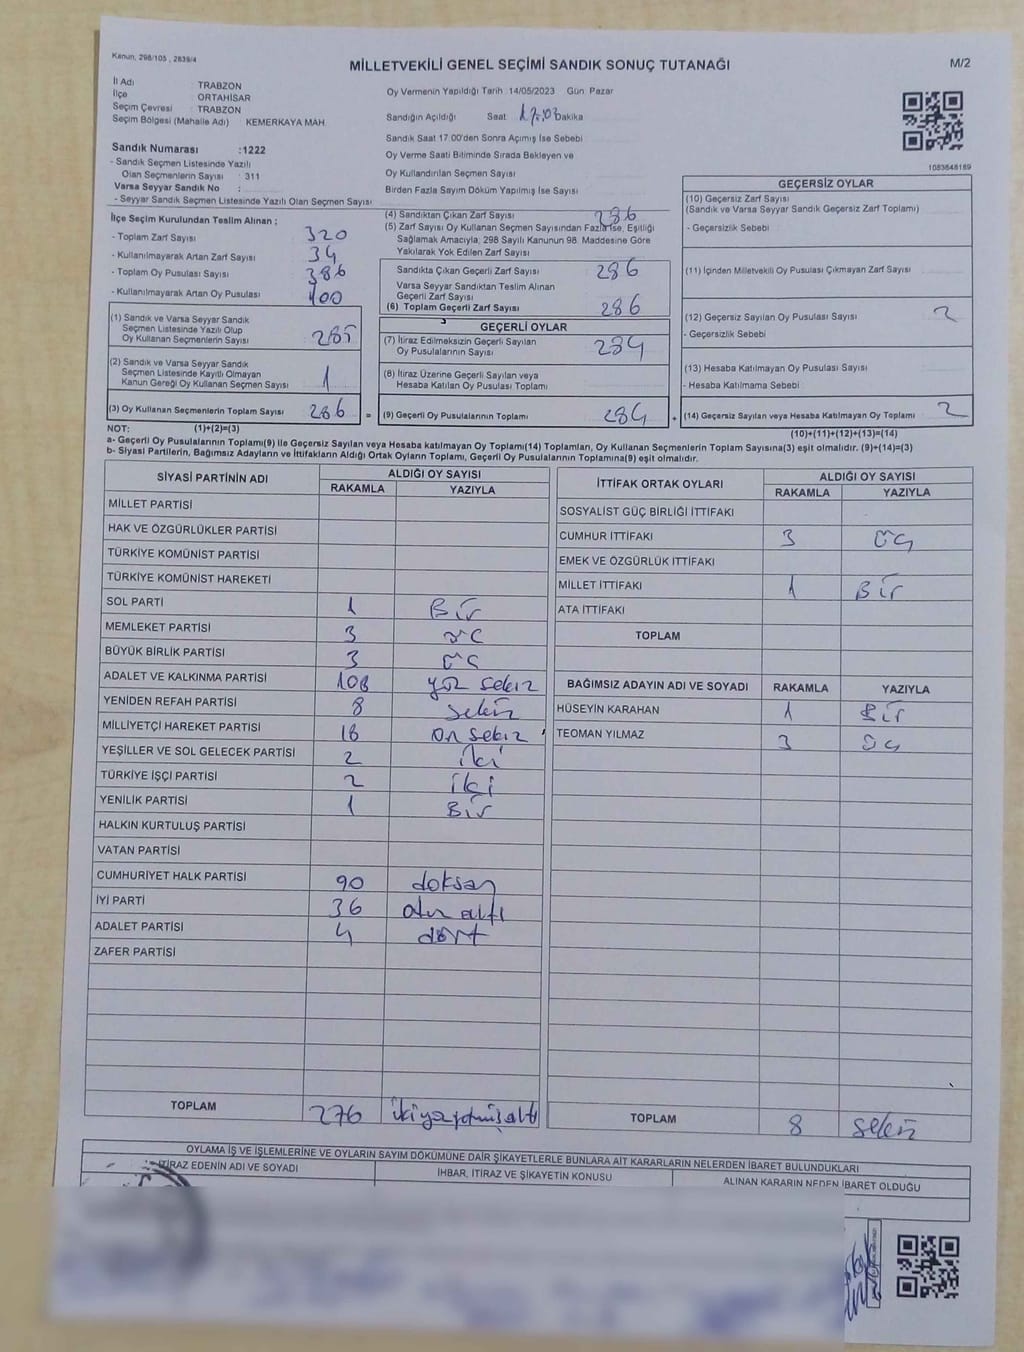 Kanun, 298/105 , 2839/4
MİLLETVEKİLİ GENEL SEÇİMİ SANDIK SONUÇ TUTANAĞI
M/2
İl Adı TRABZON
İlçe ORTAHİSAR
Seçim Çevresi TRABZON
Seçim Bölgesi (Mahalle Adı) KEMERKAYA MAH.
Sandık Numarası :1222
- Sandık Seçmen Listesinde Yazılı
Olan Seçmenlerin Sayısı : 311
Varsa Seyyar Sandık No :
- Seyyar Sandık Seçmen Listesinde Yazılı Olan Seçmen Sayısı
Oy Vermenin Yapıldığı Tarih : 14/05/2023 Gün: Pazar
Sandığın Açıldığı Saat 17:03 Dakika
Sandık Saat 17.00'den Sonra Açımış İse Sebebi
Oy Verme Saati Bitiminde Sırada Bekleyen ve
Oy Kullandırılan Seçmen Sayısı
Birden Fazla Sayım Döküm Yapılmış İse Sayısı
1083648189
İlçe Seçim Kurulundan Teslim Alınan ;
- Toplam Zarf Sayısı 320
- Kullanılmayarak Artan Zarf Sayısı 34
- Toplam Oy Pusulası Sayısı 386
- Kullanılmayarak Artan Oy Pusulası 100
(1) Sandık ve Varsa Seyyar Sandık
Seçmen Listesinde Yazılı Olup
Oy Kullanan Seçmenlerin Sayısı 285
(2) Sandık ve Varsa Seyyar Sandık
Seçmen Listesinde Kayıtlı Olmayan
Kanun Gereği Oy Kullanan Seçmen Sayısı 1
(3) Oy Kullanan Seçmenlerin Toplam Sayısı 286 =
(4) Sandıktan Çıkan Zarf Sayısı 286
(5) Zarf Sayısı Oy Kullanan Seçmen Sayısından Fazla ise, Eşitliği
Sağlamak Amacıyla; 298 Sayılı Kanunun 98. Maddesine Göre
Yakılarak Yok Edilen Zarf Sayısı
Sandıkta Çıkan Geçerli Zarf Sayısı 286
Varsa Seyyar Sandıktan Teslim Alınan
Geçerli Zarf Sayısı
(6) Toplam Geçerli Zarf Sayısı 286
GEÇERLİ OYLAR
(7) İtiraz Edilmeksizin Geçerli Sayılan
Oy Pusulalarının Sayısı 284
(8) İtiraz Üzerine Geçerli Sayılan veya
Hesaba Katılan Oy Pusulası Toplamı
(9) Geçerli Oy Pusulalarının Toplamı 284 +
GEÇERSİZ OYLAR
(10) Geçersiz Zarf Sayısı
(Sandık ve Varsa Seyyar Sandık Geçersiz Zarf Toplamı)
- Geçersizlik Sebebi
(11) İçinden Milletvekili Oy Pusulası Çıkmayan Zarf Sayısı
(12) Geçersiz Sayılan Oy Pusulası Sayısı 2
- Geçersizlik Sebebi
(13) Hesaba Katılmayan Oy Pusulası Sayısı
- Hesaba Katılmama Sebebi
(14) Geçersiz Sayılan veya Hesaba Katılmayan Oy Toplamı 2
NOT: (1)+(2)=(3)
(10)+(11)+(12)+(13)=(14)
a- Geçerli Oy Pusulalarının Toplamı(9) ile Geçersiz Sayılan veya Hesaba katılmayan Oy Toplamı(14) Toplamları, Oy Kullanan Seçmenlerin Toplam Sayısına(3) eşit olmalıdır. (9)+(14)=(3)
b- Siyasi Partilerin, Bağımsız Adayların ve İttifakların Aldığı Ortak Oyların Toplamı, Geçerli Oy Pusulalarının Toplamına(9) eşit olmalıdır.
SİYASİ PARTİNİN ADI ALDIĞI OY SAYISI
RAKAMLA YAZIYLA
MİLLET PARTİSİ
HAK VE ÖZGÜRLÜKLER PARTİSİ
TÜRKİYE KOMÜNİST PARTİSİ
TÜRKİYE KOMÜNİST HAREKETİ
SOL PARTİ 1 Bir
MEMLEKET PARTİSİ 3 üç
BÜYÜK BİRLİK PARTİSİ 3 üç
ADALET VE KALKINMA PARTİSİ 108 yüz sekiz
YENİDEN REFAH PARTİSİ 8 sekiz
MİLLİYETÇİ HAREKET PARTİSİ 18 on sekiz
YEŞİLLER VE SOL GELECEK PARTİSİ 2 iki
TÜRKİYE İŞÇİ PARTİSİ 2 iki
YENİLİK PARTİSİ 1 Bir
HALKIN KURTULUŞ PARTİSİ
VATAN PARTİSİ
CUMHURİYET HALK PARTİSİ 90 doksan
İYİ PARTİ 36 otuz altı
ADALET PARTİSİ 4 dört
ZAFER PARTİSİ
TOPLAM 276 ikiyüzyetmişaltı
İTTİFAK ORTAK OYLARI ALDIĞI OY SAYISI
RAKAMLA YAZIYLA
SOSYALİST GÜÇ BİRLİĞİ İTTİFAKI
CUMHUR İTTİFAKI 3 üç
EMEK VE ÖZGÜRLÜK İTTİFAKI
MİLLET İTTİFAKI 1 Bir
ATA İTTİFAKI
TOPLAM
BAĞIMSIZ ADAYIN ADI VE SOYADI RAKAMLA YAZIYLA
HÜSEYİN KARAHAN 1 Bir
TEOMAN YILMAZ 3 üç
TOPLAM 8 sekiz
OYLAMA İŞ VE İŞLEMLERİNE VE OYLARIN SAYIM DÖKÜMÜNE DAİR ŞİKAYETLERLE BUNLARA AİT KARARLARIN NELERDEN İBARET BULUNDUKLARI
İTİRAZ EDENİN ADI VE SOYADI İHBAR, İTİRAZ VE ŞİKAYETİN KONUSU ALINAN KARARIN NEDEN İBARET OLDUĞU